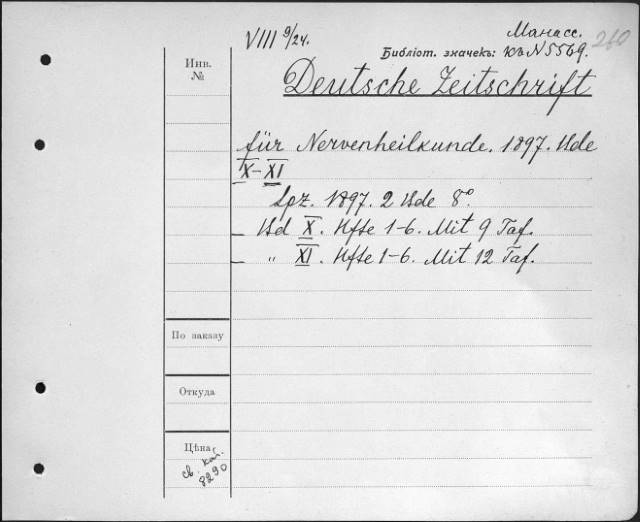 VIII 9/24.
Манасс.
260
Библіот. значекъ: къ N 5569.
Инв.
№
Deutsche Zeitschrift
für Nervenheilkunde. 1897. Bde
X-XI
Lpz. 1897. 2 Bde 8°.
Bd X. Hfte 1-6. Mit 9 Taf.
" XI. Hfte 1-6. Mit 12 Taf.
По заказу
Откуда
Цѣна
св. кат.
8290